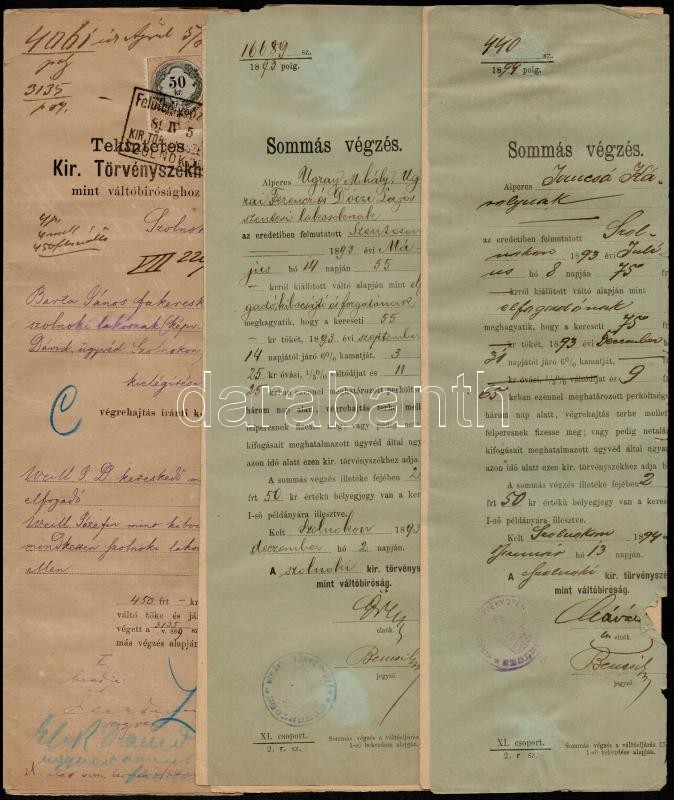 4061
3135
50
kr.
SZOLNOK
Tekintetes
Kir. Törvényszékh
mint váltóbirósághoz
Szolnok
VII
Barta János fakeresk
szolnoki lakosnak (képv.
Dávid ügyvéd Szolnokon
végrehajtás iránti k
Weill kereskedő
elfogadó
Weill József mint
szolnoki
ellen
450 frt — kr
váltó tőke és já
végett a 3135
más végzés alap
16689 sz.
1893 polg.
Sommás végzés.
Alperes Ugray Mihály, Ug
rai Ferencz és Dóczi Lajos
szentesi lakosoknak
az eredetiben felmutatott Szentesen
1893 évi Má
jus hó 14 napján 55
krról kiállított váltó alapján mint el
meghagyatik, hogy a kereseti 55
kr tőkét, 1893 évi szeptember
14 napjától járó 6% kamatját, 3
25 kr óvási, 1/3% váltódíjat és 11
25 krban ezennel meghatározott perköltsé
három nap alatt, végrehajtás terhe melle
felperesnek fizesse meg; vagy pedig net
kifogásait meghatalmazott ügyvéd által ugy
azon idő alatt ezen kir. törvényszékhez adja b
A sommás végzés illetéke fejében 2
frt 50 kr értékü bélyegjegy van a kere
I-ső példányára illesztve.
Kelt Szolnokon 1893
deczember hó 2 napján.
A szolnoki kir. törvénysz
mint váltóbiróság.
elnök.
jegyző.
XI. csoport.
2. r. sz.
Sommás végzés a váltóeljárás
I-ső bekezdése alapján.
440 sz.
1894 polg.
Sommás végzés.
Alperes Jancsó Ká
rolynak
az eredetiben felmutatott Szol
nokon 1893 évi Juli
us hó 8 napján 75 f
krról kiállított váltó alapján mint
elfogadónak
meghagyatik, hogy a kereseti 75
kr tőkét, 1893 December
31 napjától járó 6% kamatját,
kr óvási, 1/3% váltódíjat és 9
65 krban ezennel meghatározott perköltsége
három nap alatt, végrehajtás terhe mellet
felperesnek fizesse meg; vagy pedig netalá
kifogásait meghatalmazott ügyvéd által ugya
azon idő alatt ezen kir. törvényszékhez adja b
A sommás végzés illetéke fejében 2
frt 50 kr értékü bélyegjegy van a keres
I-ső példányára illesztve.
Kelt Szolnokon 1894
Január hó 13 napján.
A szolnoki kir. törvénysz
mint váltóbiróság.
elnök.
jegyző.
XI. csoport.
2. r. sz.
Sommás végzés a váltóeljárás 15
I-ső bekezdése alapján.
darabanth